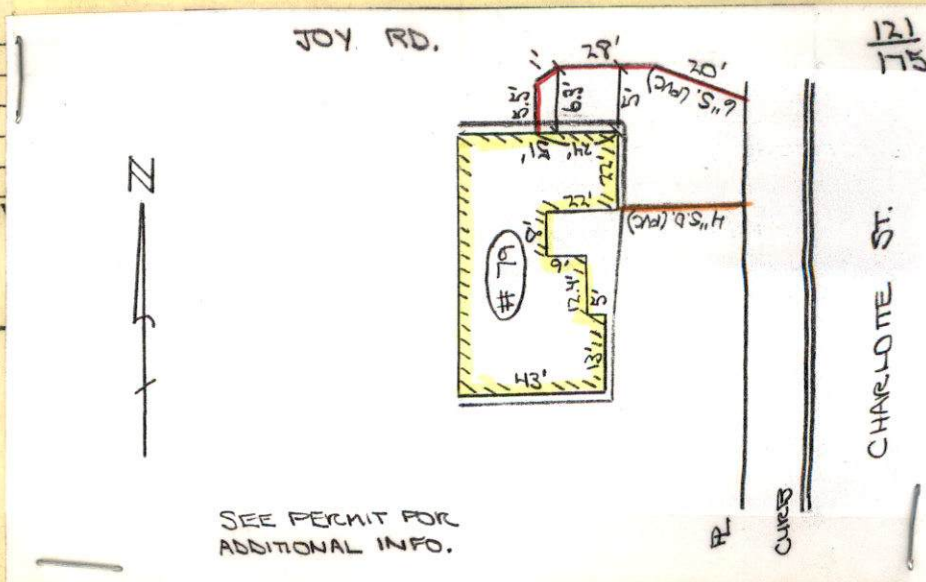 JOY RD.
121
175
1'
28'
20'
5.5'
6.3'
5'
6" S. (PVC)
N
51'
24'
22'
22'
4" S.D. (PVC)
8'
# 79
6'
12.4'
5'
13'
43'
CHARLOTTE ST.
SEE PERMIT FOR
ADDITIONAL INFO.
PL
CURB